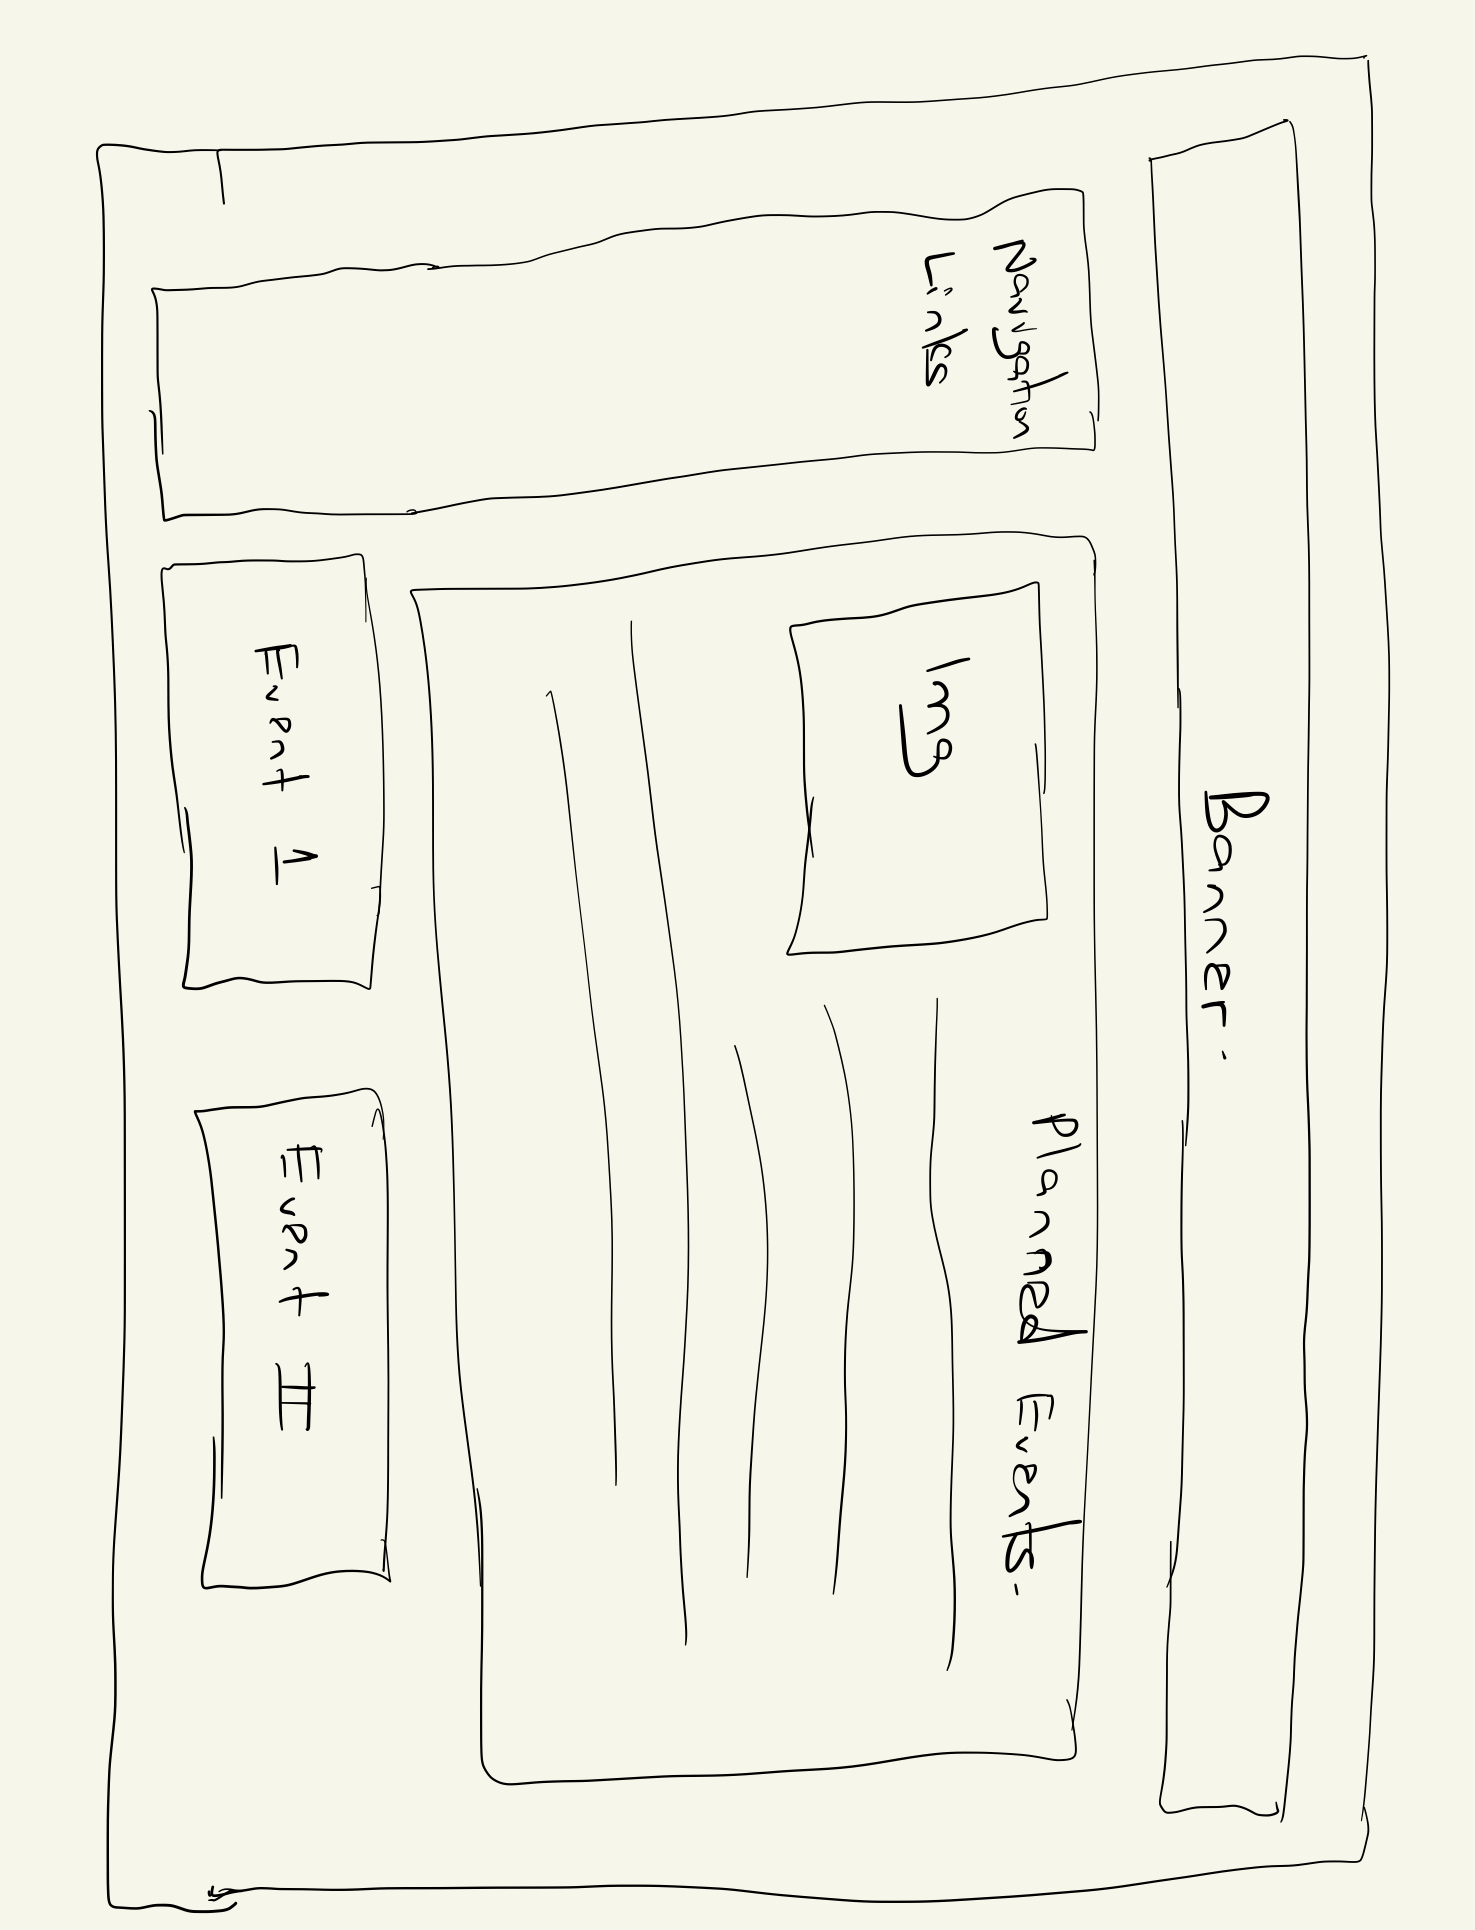 Banner.
Navigation
Links
Planned Events.
Img
Event 1
Event II